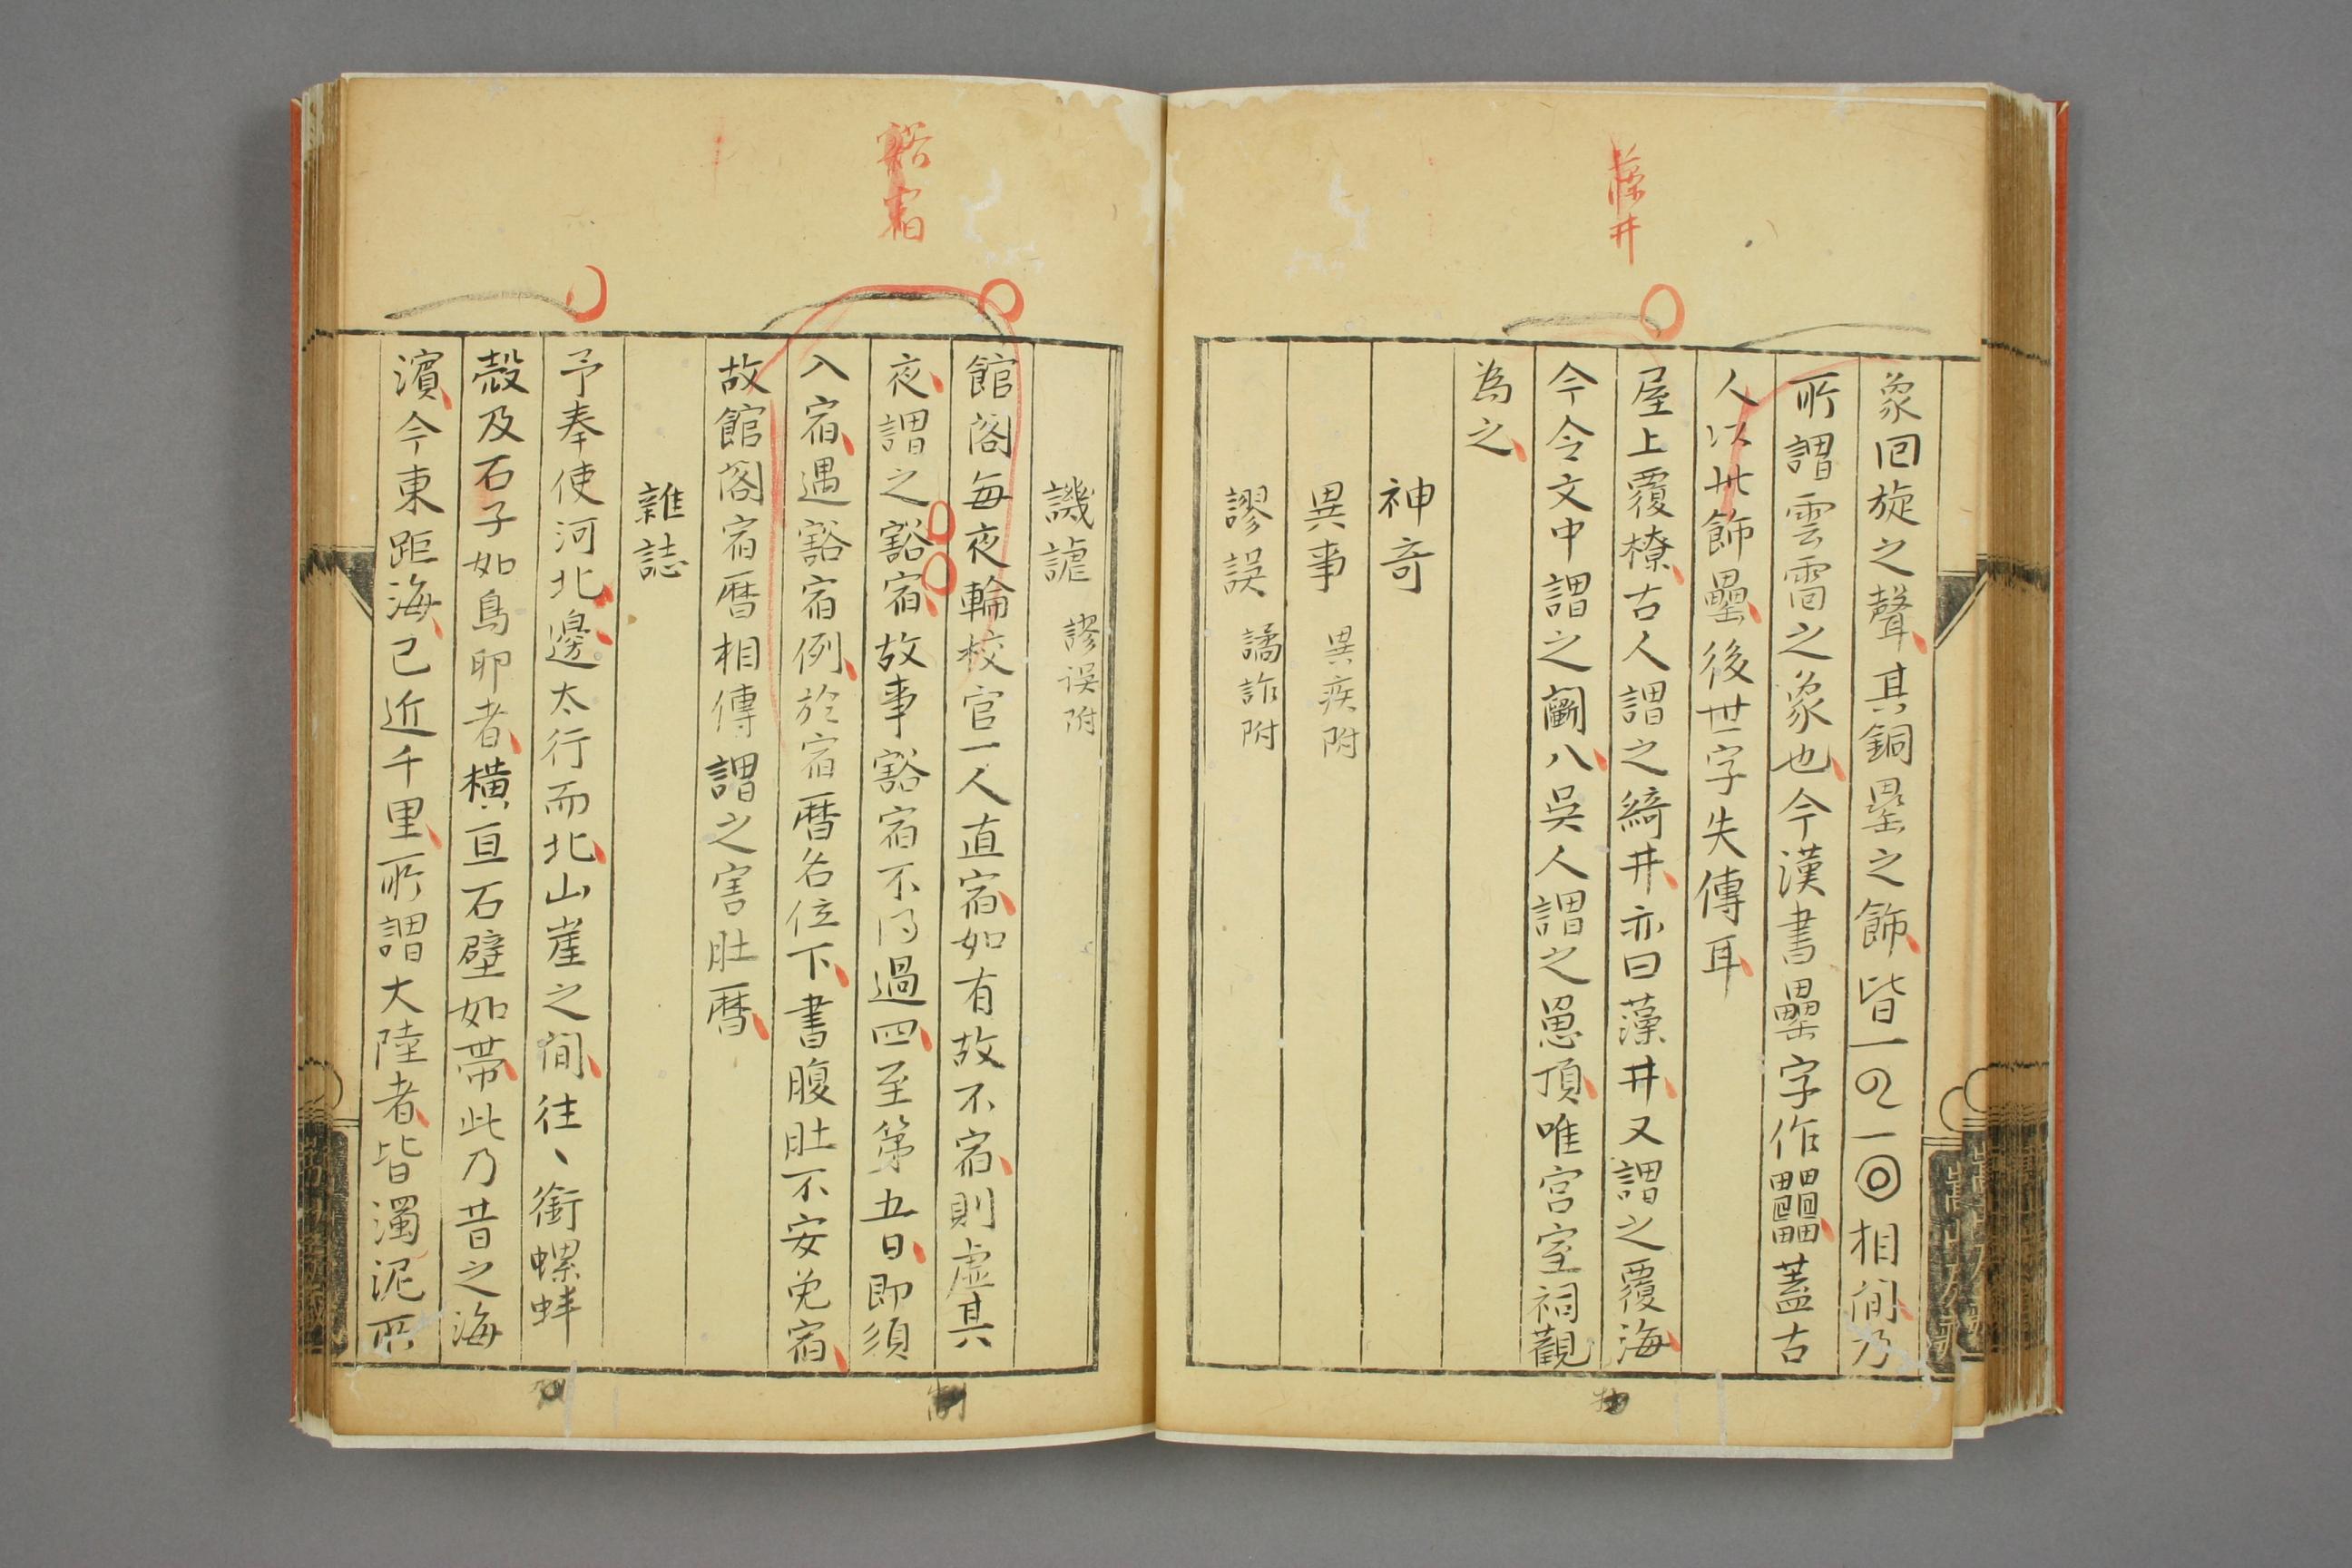 藻井
象回旋之聲其銅罍之飾皆一一◎相間乃
所謂雲雷之象也今漢書罍字作蓋古
人以此飾罍後世字失傳耳
屋上覆橑古人謂之綺井亦曰藻井又謂之覆海
今令文中謂之闘八吳人謂之罳頂唯宫室祠觀
為之
神奇
異事 異疾附
謬誤 譎詐附
譏謔 謬误附
豁宿
館閣每夜輪校官一人直宿如有故不宿則虛其
夜謂之豁宿故事豁宿不得過四至第五日即須
入宿遇豁宿例於宿暦名位下書腹肚不安免宿
故館閣宿暦相傳謂之害肚暦
雜誌
予奉使河北邊太行而北山崖之間往、銜螺蚌
殼及石子如鳥卵者橫亘石壁如帶此乃昔之海
濱今東距海已近千里所謂大陸者皆濁泥所